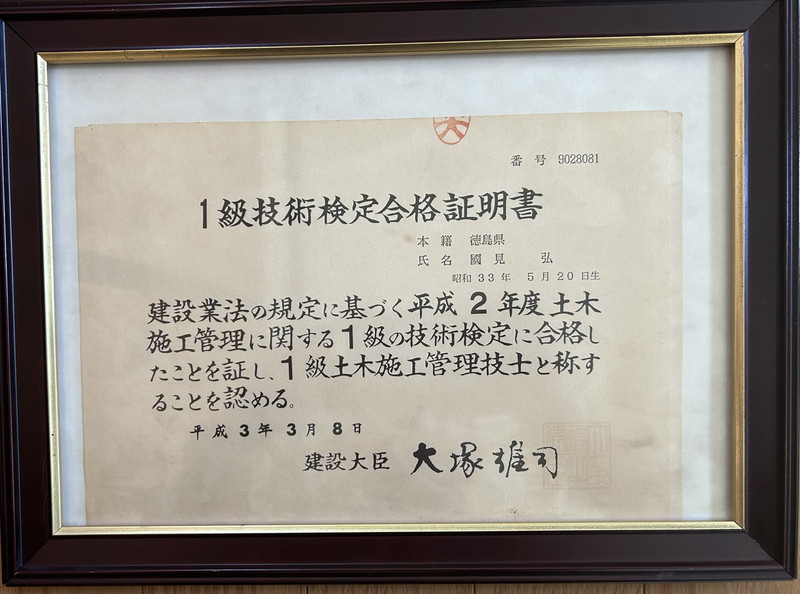 番号 9028081
1級技術検定合格証明書
本籍 徳島県
氏名 國見 弘
昭和33年 5月20日生
建設業法の規定に基づく平成2年度土木
施工管理に関する1級の技術検定に合格し
たことを証し、1級土木施工管理技士と称す
ることを認める。
平成3年3月8日
建設大臣 大塚雄司